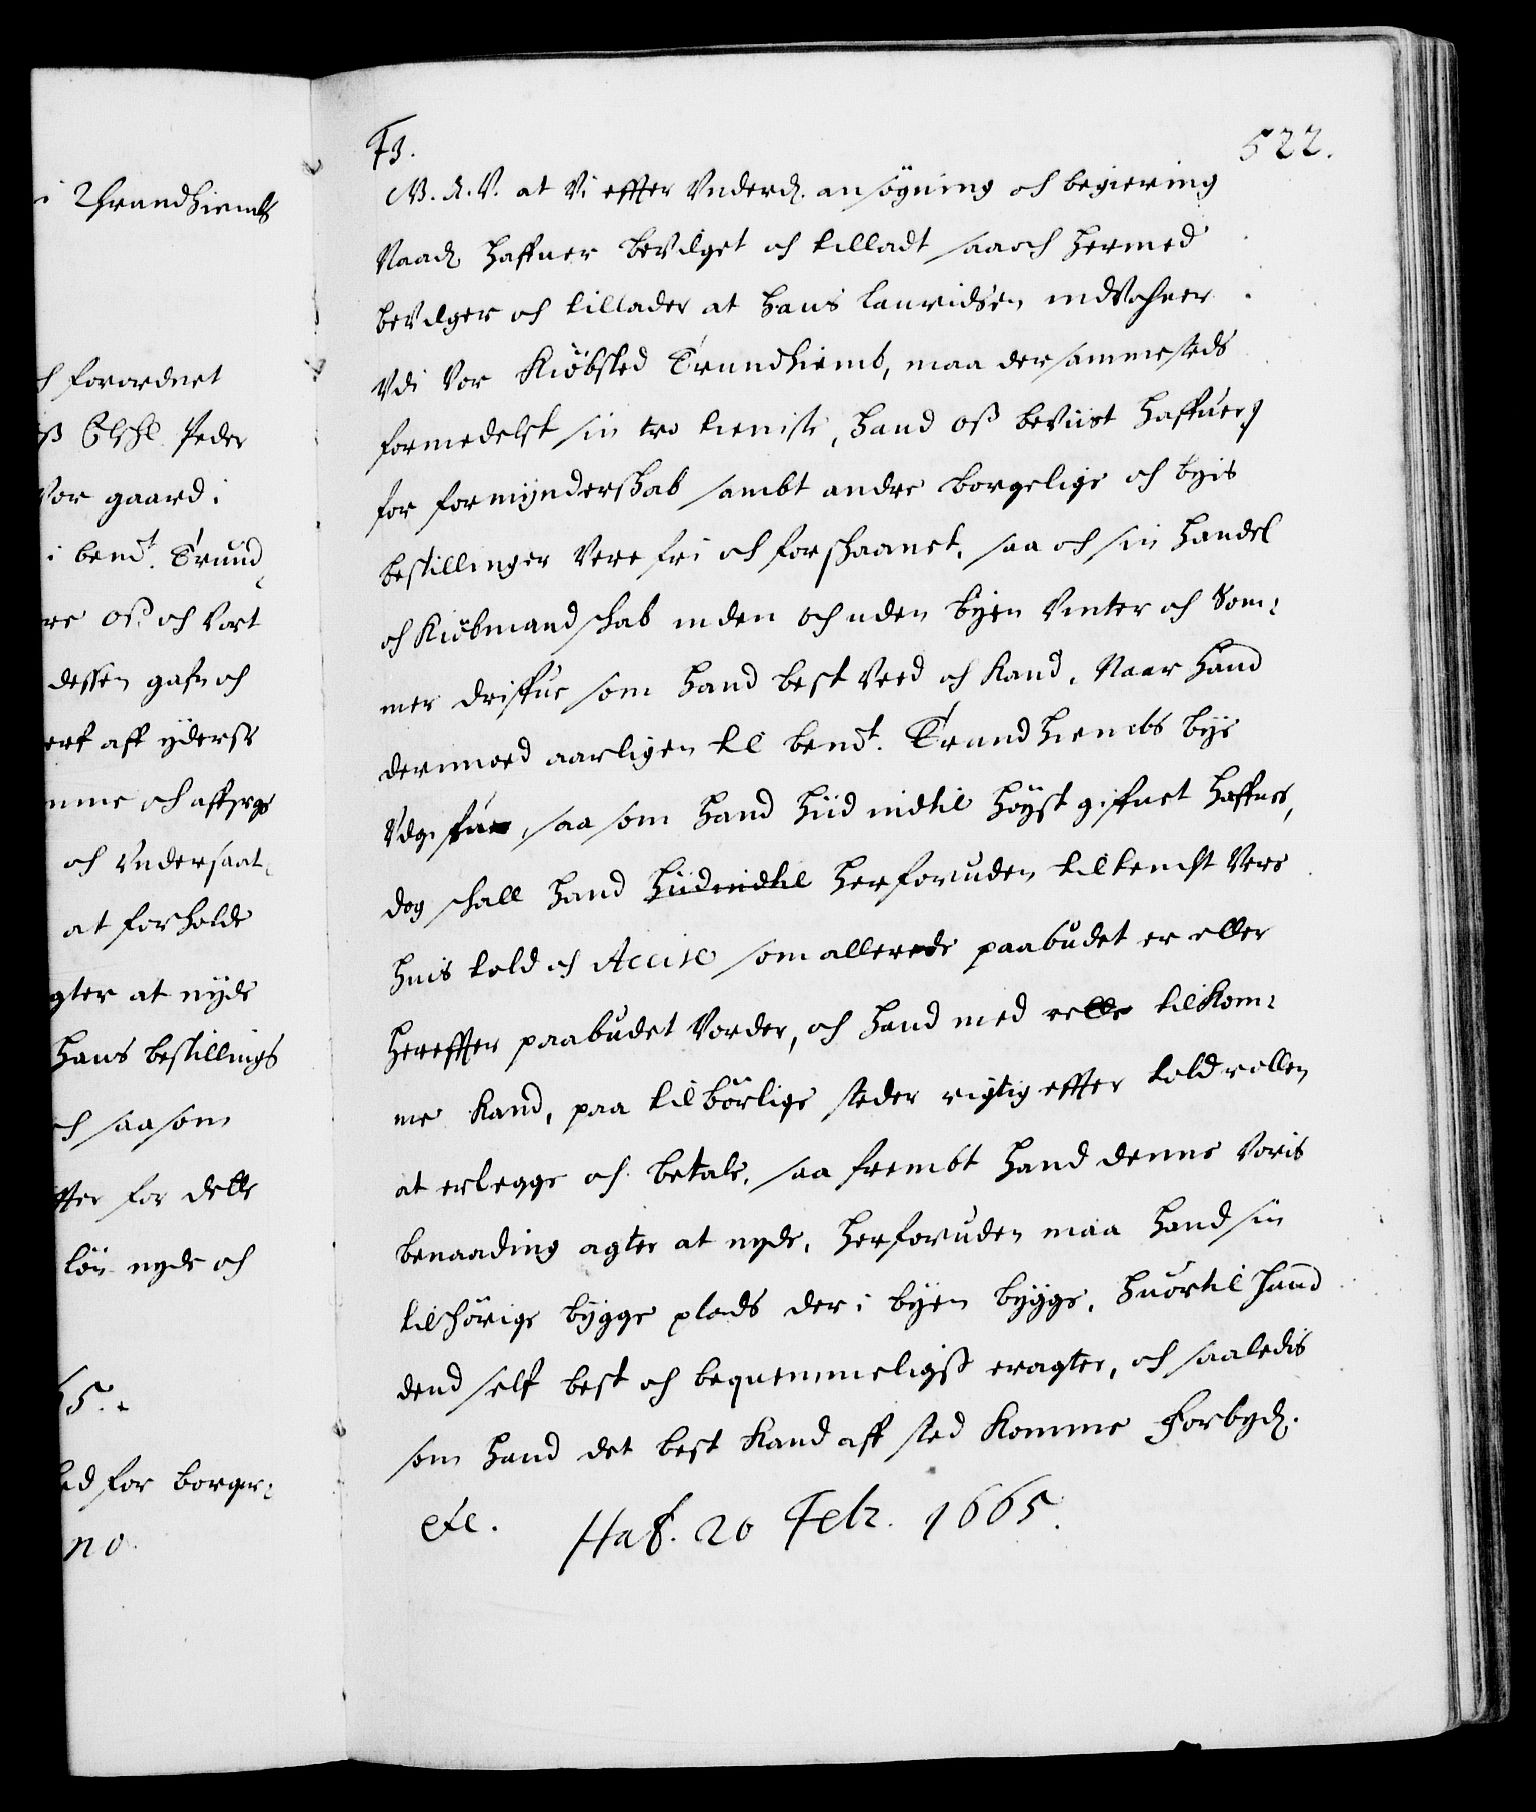 i Thrundhiembs
h forordnet
ß Elschl. Peder
Vor gaard i
i bend.t Trund¬
re oß och Vort
dessen gafn och
ert aff yderste
mme och affverge
och Undersaat¬
at forholde
gter at nyde
Hans bestillings
h saasom
fter for dette
løn nyde och
65.
ed for borger¬
no.
F3. 522.
G. A. V. at Vi effter Underd. ansøgning och begiering
Naad. haffuer bevilget och tilladt saa och hermed
bevilger och tillader at Hans Lauridsen indvohner
Udi Vor Kiøbsted Trundhiemb, maa dersammesteds
formedelst sin tro tieniste, hand oß beviist haffuer,
for formynderskab sambt andre borgelige och byes
bestillinger Vere fri och forskaanet, saa och sin handel
och Kiøbmandskab inden och uden byen Vinter och Som¬
mer driffue som hand best Veed och Kand, Naar hand
dermoed aarligen til bend.t Trundhiembs bys
Udgifter, saa som hand hiid indtil høyst gifuet haffuer,
dog schall hand hiid indtil herforuden tiltencht Vere
huis told och Accise som allerede paabudet er eller
hereffter paabudet Vorder, och hand med rette tilkom¬
me kand, paa tilbørlige steder rigtig effter toldrollen
at erlegge och betale, saa frembt hand denne Voris
benaading agter at nyde, herforuden maa hand sin
tilhørige bygge plads der i byen bygge, huortil hand
dend self best och bequemmeligst eragter, och saaledis
som hand det best kand aff sted komme Forbyd.
etc. Haf. 20 Febr. 1665.